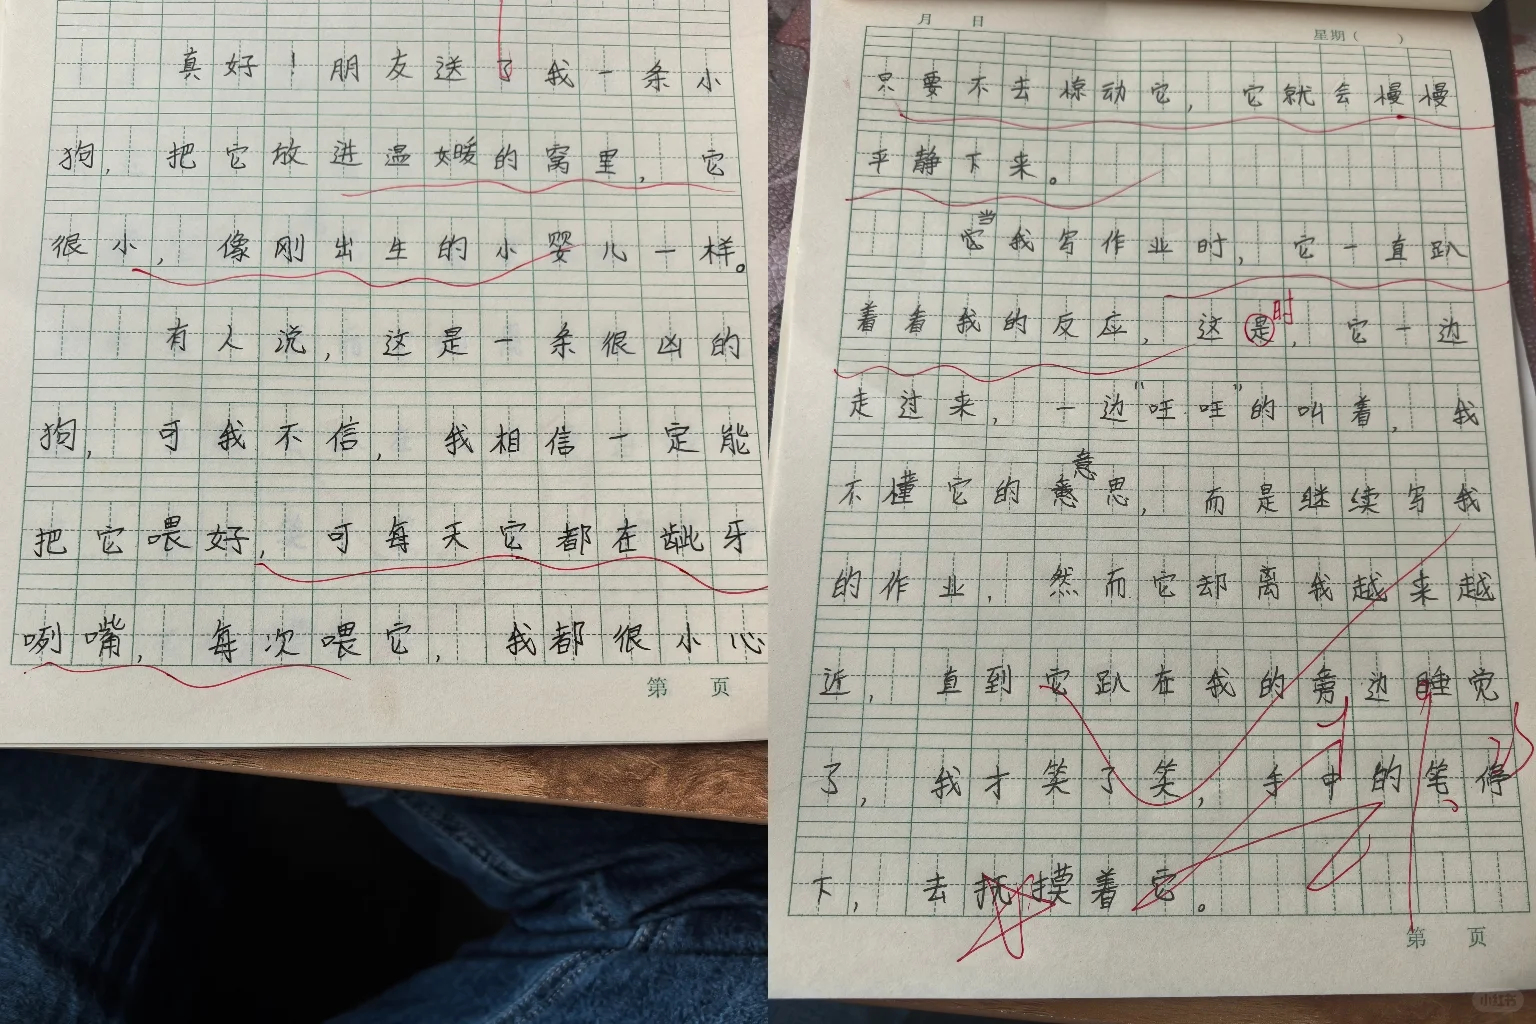 真好！朋友送了我一条小
狗，把它放进温暖的窝里，它
很小，像刚出生的小婴儿一样。
有人说，这是一条很凶的
狗，可我不信，我相信一定能
把它喂好，可每天它都在龇牙
咧嘴，每次喂它，我都很小心
第 页
月 日 星期（ ）
只要不去惊动它，它就会慢慢
平静下来。
当我写作业时，它一直趴
着看我的反应，这是时，它一边
走过来，一边“旺旺”的叫着，我
不懂它的意思，而是继续写我
的作业，然而它却离我越来越
近，直到它趴在我的旁边睡觉
了，我才笑了笑，手中的笔停
下，去抚摸着它。
第 页
小红书